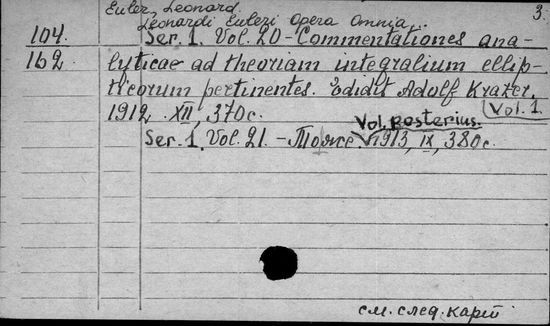 3.
Euler, Leonard.
Leonardi Euleri Opera Omnia..
104. Ser. 1. Vol. 20 - Commentationes ana-
162 lyticae ad theoriam integralium ellip-
ticorum pertinentes. Edidit Adolf Krazer.
Vol. 1.
1912. XII, 370c.
Vol. posterius.
Ser. 1. Vol. 21. - Тоже. 1913, IX, 380c.
см. след. карт